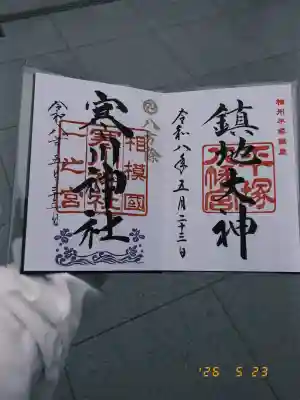 相州平塚鎮座
鎮地大神
平塚八幡宮
令和八年五月二十三日
八方除
寒川神社
相模國
一之宮
令和八年五月二十三日
'26 5 23